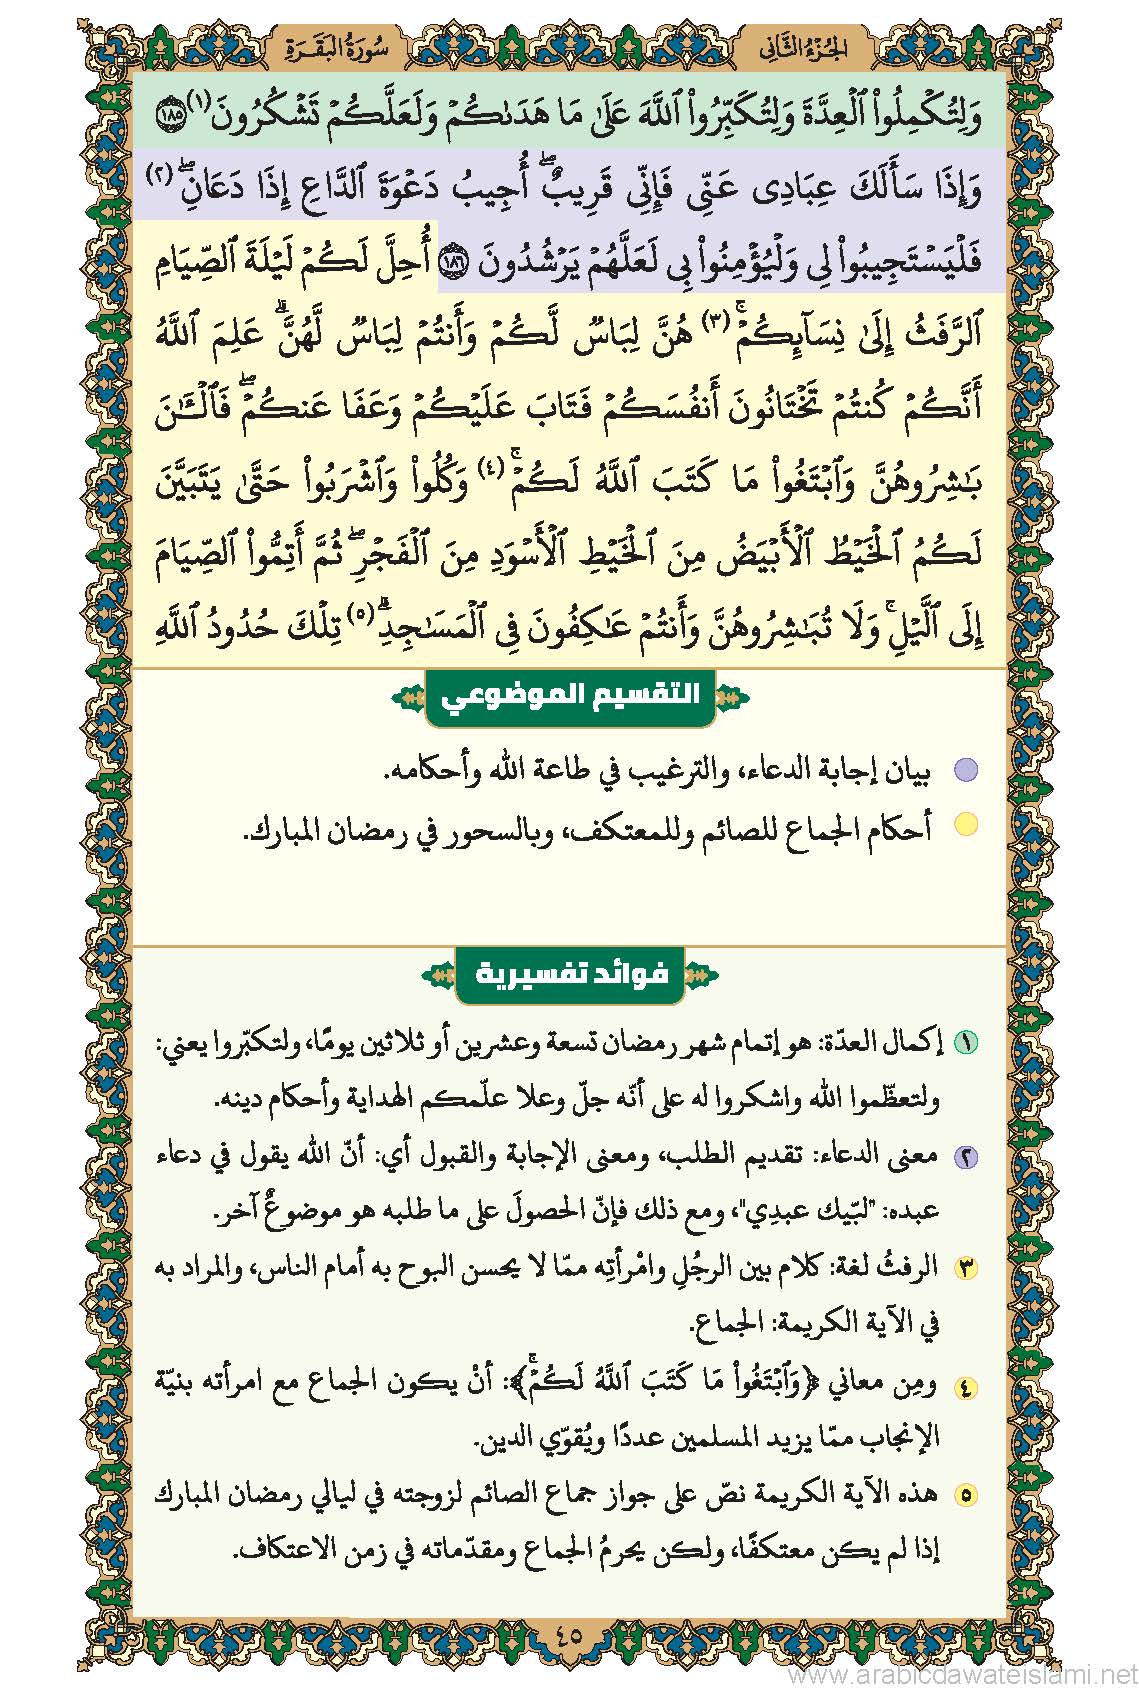 الجُزْءُ الثَّانِي
سُورَةُ البَقَرَةِ
وَلِتُكْمِلُواْ ٱلْعِدَّةَ وَلِتُكَبِّرُواْ ٱللَّهَ عَلَىٰ مَا هَدَىٰكُمْ وَلَعَلَّكُمْ تَشْكُرُونَ (١) ١٨٥
وَإِذَا سَأَلَكَ عِبَادِى عَنِّى فَإِنِّى قَرِيبٌ ۖ أُجِيبُ دَعْوَةَ ٱلدَّاعِ إِذَا دَعَانِ ۖ (٢)
فَلْيَسْتَجِيبُواْ لِى وَلْيُؤْمِنُواْ بِى لَعَلَّهُمْ يَرْشُدُونَ ١٨٦ أُحِلَّ لَكُمْ لَيْلَةَ ٱلصِّيَامِ
ٱلرَّفَثُ إِلَىٰ نِسَآئِكُمْ ۚ (٣) هُنَّ لِبَاسٌ لَّكُمْ وَأَنتُمْ لِبَاسٌ لَّهُنَّ ۗ عَلِمَ ٱللَّهُ
أَنَّكُمْ كُنتُمْ تَخْتَانُونَ أَنفُسَكُمْ فَتَابَ عَلَيْكُمْ وَعَفَا عَنكُمْ ۖ فَٱلْـَٰٔنَ
بَـٰشِرُوهُنَّ وَٱبْتَغُواْ مَا كَتَبَ ٱللَّهُ لَكُمْ ۚ (٤) وَكُلُواْ وَٱشْرَبُواْ حَتَّىٰ يَتَبَيَّنَ
لَكُمُ ٱلْخَيْطُ ٱلْأَبْيَضُ مِنَ ٱلْخَيْطِ ٱلْأَسْوَدِ مِنَ ٱلْفَجْرِ ۖ ثُمَّ أَتِمُّواْ ٱلصِّيَامَ
إِلَى ٱلَّيْلِ ۚ وَلَا تُبَـٰشِرُوهُنَّ وَأَنتُمْ عَـٰكِفُونَ فِى ٱلْمَسَـٰجِدِ ۗ (٥) تِلْكَ حُدُودُ ٱللَّهِ
التقسيم الموضوعي
بيان إجابة الدعاء، والترغيب في طاعة الله وأحكامه.
أحكام الجماع للصائم وللمعتكف، وبالسحور في رمضان المبارك.
فوائد تفسيرية
١ إكمال العدّة: هو إتمام شهر رمضان تسعة وعشرين أو ثلاثين يومًا، ولتكبّروا يعني:
ولتعظّموا الله واشكروا له على أنّه جلّ وعلا علّمكم الهداية وأحكام دينه.
٢ معنى الدعاء: تقديم الطلب، ومعنى الإجابة والقبول أي: أنّ الله يقول في دعاء
عبده: "لبّيك عبدِي"، ومع ذلك فإنّ الحصولَ على ما طلبه هو موضوعٌ آخر.
٣ الرفثُ لغة: كلام بين الرجُلِ وامْرأتِه ممّا لا يحسن البوح به أمام الناس، والمراد به
في الآية الكريمة: الجماع.
٤ ومِن معاني ﴿وَٱبْتَغُواْ مَا كَتَبَ ٱللَّهُ لَكُمْ ۚ﴾: أنْ يكون الجماع مع امرأته بنيّة
الإنجاب ممّا يزيد المسلمين عددًا ويُقوّي الدين.
٥ هذه الآية الكريمة نصّ على جواز جماع الصائم لزوجته في ليالي رمضان المبارك
إذا لم يكن معتكفًا، ولكن يحرمُ الجماع ومقدّماته في زمن الاعتكاف.
٤٥
www.arabicdawateislami.net